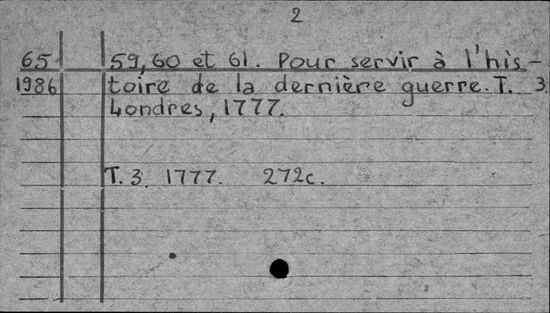 2
65 59, 60 et 61. Pour servir à l'his-
1986 toire de la dernière guerre. T. 3.
Londres, 1777.
T. 3. 1777. 272c.